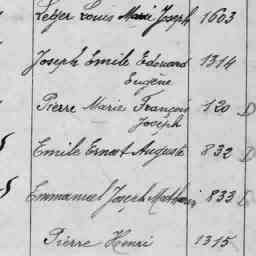 Léger Louis Marie Joseph 1603
Joseph Emile Edouard 1314
Eugène
Pierre Marie François 120 D
Joseph
Emile Ernest Auguste 832 D
Emmanuel Joseph Mathurin 833 D
Pierre Henri 1315